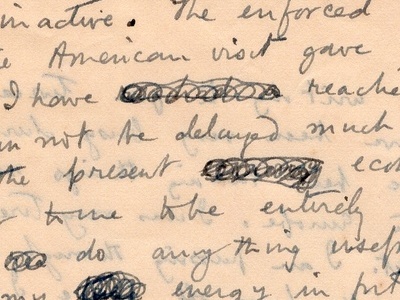 inactive. The enforced
American visit gave
I have reache
not be delayed much
the present eco
to me to be entirely
do anything usef
my energy in fut